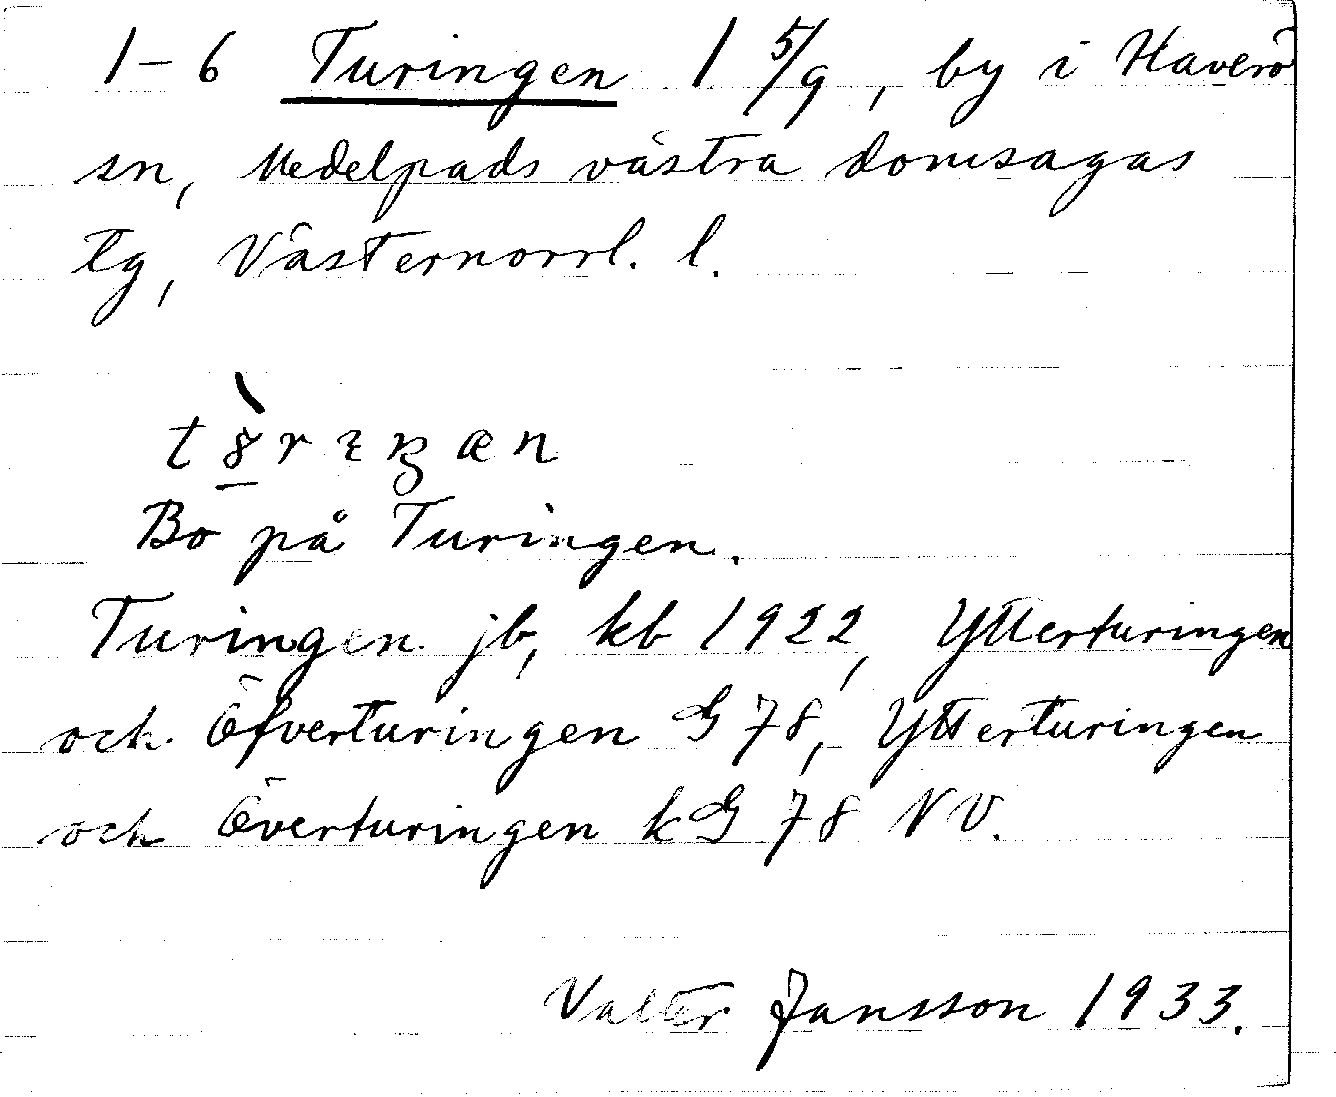 1-6 Turingen 1 5/9, by i Haverö
sn, Medelpads västra domsagas
tg, Västernorrl. l.
Bo på Turingen.
Turingen jb, kb 1922, Ytterturingen
och Öfverturingen G 78, Ytterturingen
och Överturingen kG 78 NV.
Valter Jansson 1933.